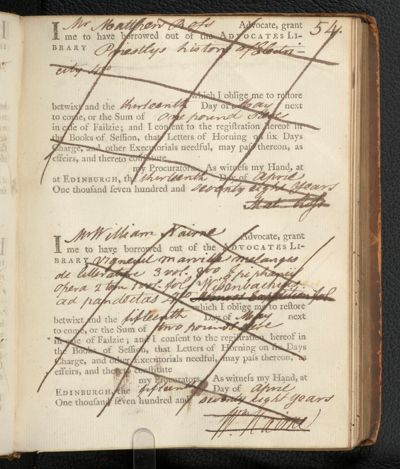 54.
I Mr Matthew Ross Advocate, grant
me to have borrowed out of the ADVOCATES LI-
BRARY Priestlys history of Electri-
city 4to
which I oblige me to reſtore
betwixt and the thirteenth Day of May next
to come, or the Sum of One pound Ster
in caſe of Failzie; and I conſent to the regiſtration hereof in
the Books of Seſſion, that Letters of Horning on ſix Days
Charge, and other Executorials needful, may paſs thereon, as
effeirs, and thereto conſtitute
my Procurators. As witneſs my Hand, at
at EDINBURGH, the thirteenth Day of April
One thouſand ſeven hundred and seventy eight years
Mat. Ross
I Mr William Nairne Advocate, grant
me to have borrowed out of the ADVOCATES LI-
BRARY Vigneul marville melanges
de litterature 3 vol.
opera 2 tom
ad pandectas
which I oblige me to reſtore
betwixt and the fifteenth Day of May next
to come, or the Sum of two pounds
in caſe of Failzie; and I conſent to the regiſtration hereof in
the Books of Seſſion, that Letters of Horning on ſix Days
Charge, and other Executorials needful, may paſs thereon, as
effeirs, and thereto conſtitute
my Procurators. As witneſs my Hand, at
EDINBURGH, the fifteenth Day of April
One thouſand ſeven hundred and seventy eight years
Wm. Nairne